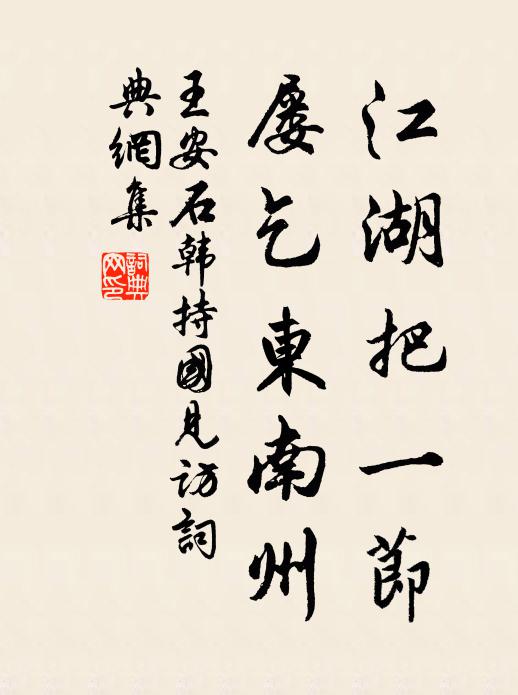 江湖把一節
屡乞東南州
王安石韩持國見访詞
典網集
詞典
网印